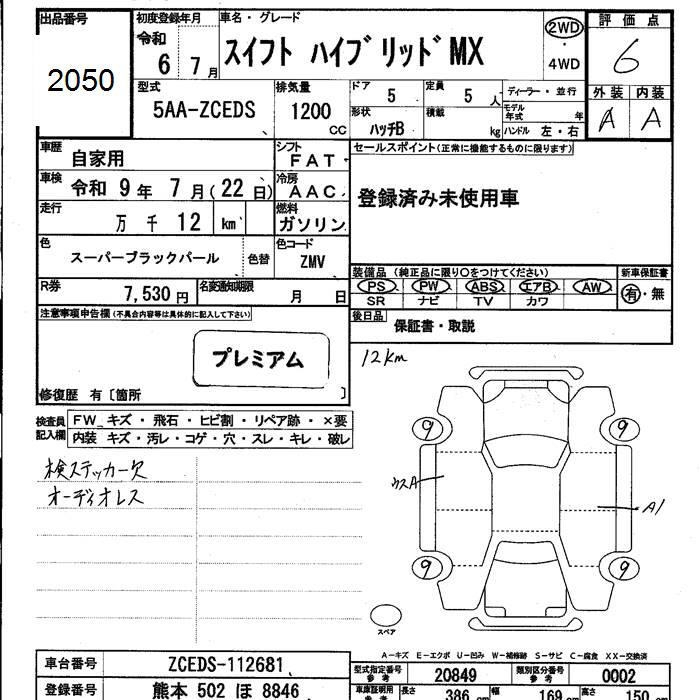 出品番号 初度登録年月 車名・グレード 評価点
2050 令和 6 7月 スイフト ハイブリッドMX 2WD・4WD 6
型式 排気量 ドア 定員 ディーラー・並行 外装 内装
5AA-ZCEDS 1200 CC 5 5人 モデル年式 年 A A
形状 積載
ハッチB kg ハンドル 左・右
車歴 シフト セールスポイント(正常に機能するものに限ります)
自家用 FAT
車検 冷房
令和 9年 7月(22日) AAC 登録済み未使用車
走行 燃料
万 千 12 km ガソリン
色 色コード
スーパーブラックパール 色替 ZMV
装備品 (純正品に限り○をつけてください) 新車保証書
R券 名変通知期限 PS PW ABS エアB AW 有・無
7,530円 月 日 SR ナビ TV カワ
注意事項申告欄(不具合内容等は具体的に記入して下さい) 後日品
保証書・取説
プレミアム
12km
修復歴 有〔箇所 〕
検査員記入欄 FW キズ・飛石・ヒビ割・リペア跡・×要
内装 キズ・汚レ・コゲ・穴・スレ・キレ・破レ
9 9
検ステッカー欠
ウスA
オーディオレス
A1
9 9
スペア
A-キズ E-エクボ U-凹み W-補修跡 S-サビ C-腐食 XX-交換済
車台番号 ZCEDS-112681 型式指定番号 参考 20849 類別区分番号 参考 0002
登録番号 熊本 502 ほ 8846 車庫証明用 参考 長さ 386 cm 幅 169 cm 高さ 150 cm